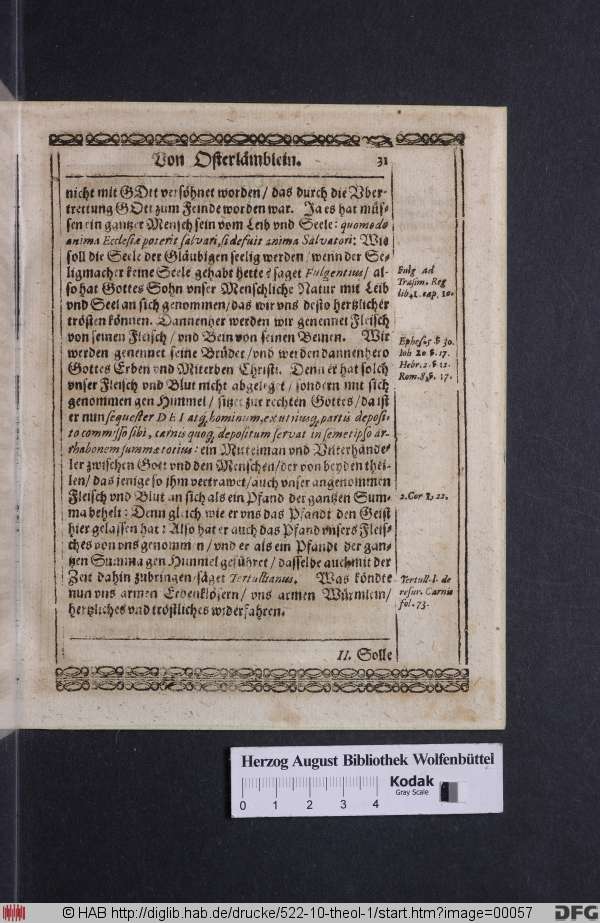 Von Osterlämblein. 31
nicht mit GOtt versöhnet worden / das durch die Vber-
trettung GOtt zum Feinde worden war. Ja es hat müs-
sen ein gantzer Mensch sein vom Leib vnd Seele: quomodo
anima Ecclesiæ poterit salvari, si defuit anima Salvatori: Wie
soll die Seele der Gläubigen seelig werden / wenn der Se-
ligmacher keine Seele gehabt hette? saget Fulgentius / al-
so hat Gottes Sohn vnser Menschliche Natur mit Leib
vnd Seel an sich genommen / das wir vns desto hertzlicher
trösten können. Dannenher werden wir genennet Fleisch
von seinen Fleisch / vnd Bein von seinen Beinen. Wir
werden genennet seine Brüder / vnd werden dannenhero
Gottes Erben vnd Miterben Christi. Denn er hat solch
vnser Fleisch vnd Blut nicht abgeleget / sondern mit sich
genommen gen Himmel / sitzet zur rechten Gottes / da ist
er nun sequester DEI atq; hominum, ex utriusq; partis deposi-
to commisso sibi, carnis quoq; depositum servat in semetipso ar-
rhabonem summæ totius: ein Mittelman vnd Vnterhände-
ler zwischen Gott vnd den Menschen / der von beyden thei-
len / das jenige so ihm vertrawet / auch vnser angenommen
Fleisch vnd Blut an sich als ein Pfand der gantzen Sum-
ma behelt: Denn gleich wie er vns das Pfandt den Geist
hier gelassen hat: Also hat er auch das Pfand vnsers Fleis-
ches von vns genommen / vnd er als ein Pfandt der gan-
tzen Summa gen Himmel geführet / dasselbe auch mit der
Zeit dahin zubringen / saget Tertullianus. Was köndte
nun vns armen Erdenklösern / vns armen Würmlein /
hertzliches vnd tröstliches widerfahren.
II. Solle
Fulg ad
Trasim. Reg
lib. 1. cap. 10.
Ephes. 5 v. 30.
Joh 20 v. 17.
Hebr. 2. v 11.
Rom. 8. v. 17.
2. Cor 1, 22.
Tertull. l. de
resur. Carnis
fol. 73.
Herzog August Bibliothek Wolfenbüttel
0 1 2 3 4
Kodak
Gray Scale
© HAB http://diglib.hab.de/drucke/522-10-theol-1/start.htm?image=00057
DFG